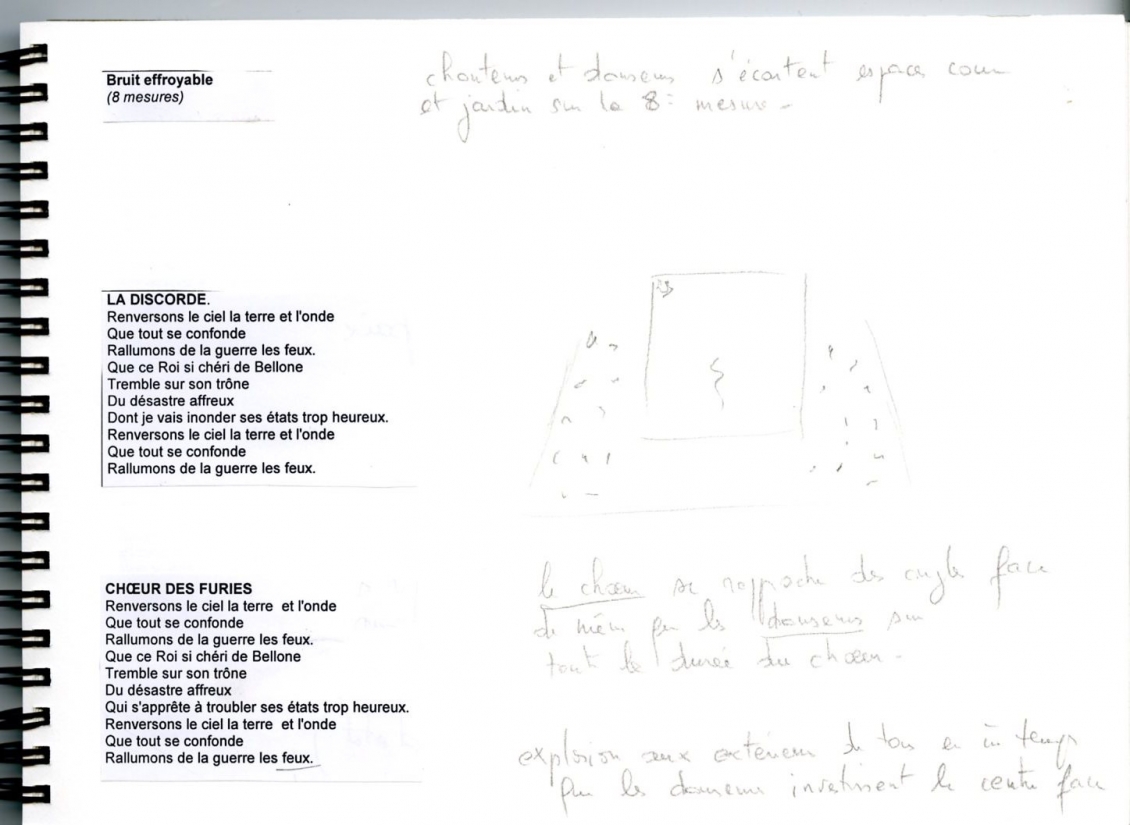 Bruit effroyable
(8 mesures)
chanteurs et danseurs s'écartent espaces cour
et jardin sur la 8e mesure -
LA DISCORDE.
Renversons le ciel la terre et l'onde
Que tout se confonde
Rallumons de la guerre les feux.
Que ce Roi si chéri de Bellone
Tremble sur son trône
Du désastre affreux
Dont je vais inonder ses états trop heureux.
Renversons le ciel la terre et l'onde
Que tout se confonde
Rallumons de la guerre les feux.
CHŒUR DES FURIES
Renversons le ciel la terre  et l'onde
Que tout se confonde
Rallumons de la guerre les feux.
Que ce Roi si chéri de Bellone
Tremble sur son trône
Du désastre affreux
Qui s'apprête à troubler ses états trop heureux.
Renversons le ciel la terre  et l'onde
Que tout se confonde
Rallumons de la guerre les feux.
le chœur se rapproche des angles face
de même que les danseurs sur
toute la durée du chœur -
explosion aux extérieurs de tous en un temps
puis les danseurs investissent le centre face